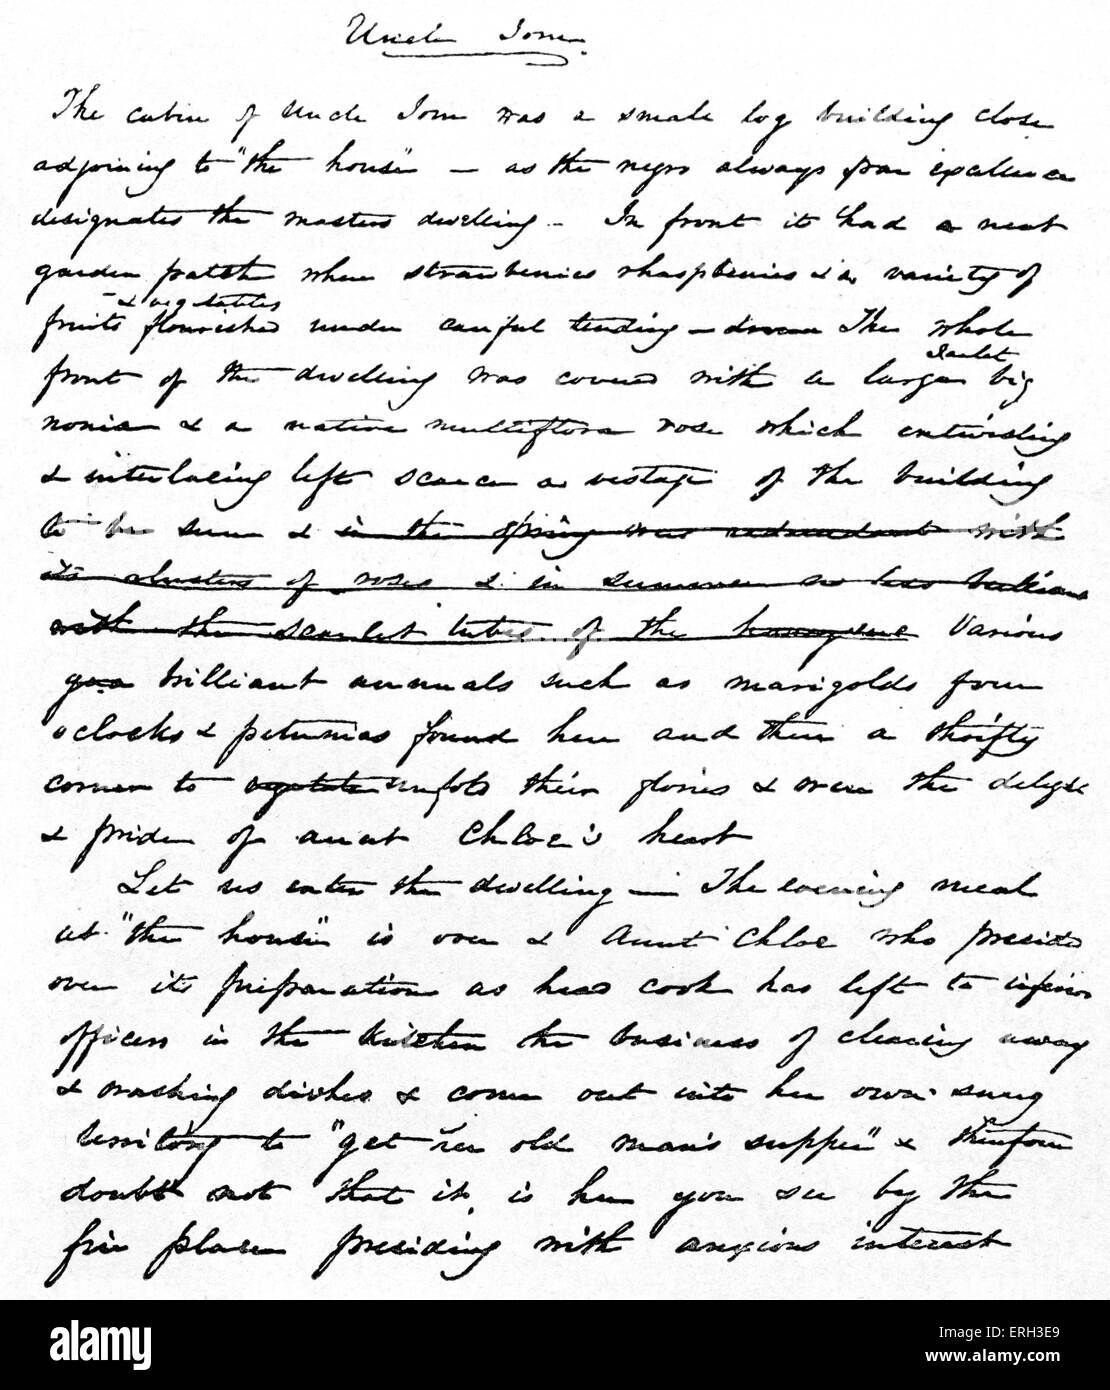 Uncle Tom.
The cabin of Uncle Tom was a small log building close
adjoining to "the house" – as the negro always par excellence
designates the masters dwelling – In front it had a neat
garden patch where strawberries rhaspberries & a variety of
fruits & vegetables flourished under careful tending – The whole
front of the dwelling was covered with a large scarlet big
nonia & a native multiflora rose which entwisting
& interlacing left scarce a vestage of the building
to be seen & in the spring was redundant with
its clusters of roses & in summer no less brilliant
with the scarlet tubes of the Various
brilliant annuals such as marigolds four
oclocks & petunias found here and there a thrifty
corner to vegetate unfold their glories & were the delight
& pride of aunt Chloe's heart
Let us enter the dwelling — The evening meal
at "the house" is over & Aunt Chloe who presided
over its preparation as head cook has left to inferior
officers in the kitchen the business of clearing away
& washing dishes & come out into her own snug
territory to "get her old man's supper" & therefore
doubt not that it is her you see by the
fire place presiding with anxious interest
alamy
alamy stock photo
ERH3E9
www.alamy.com